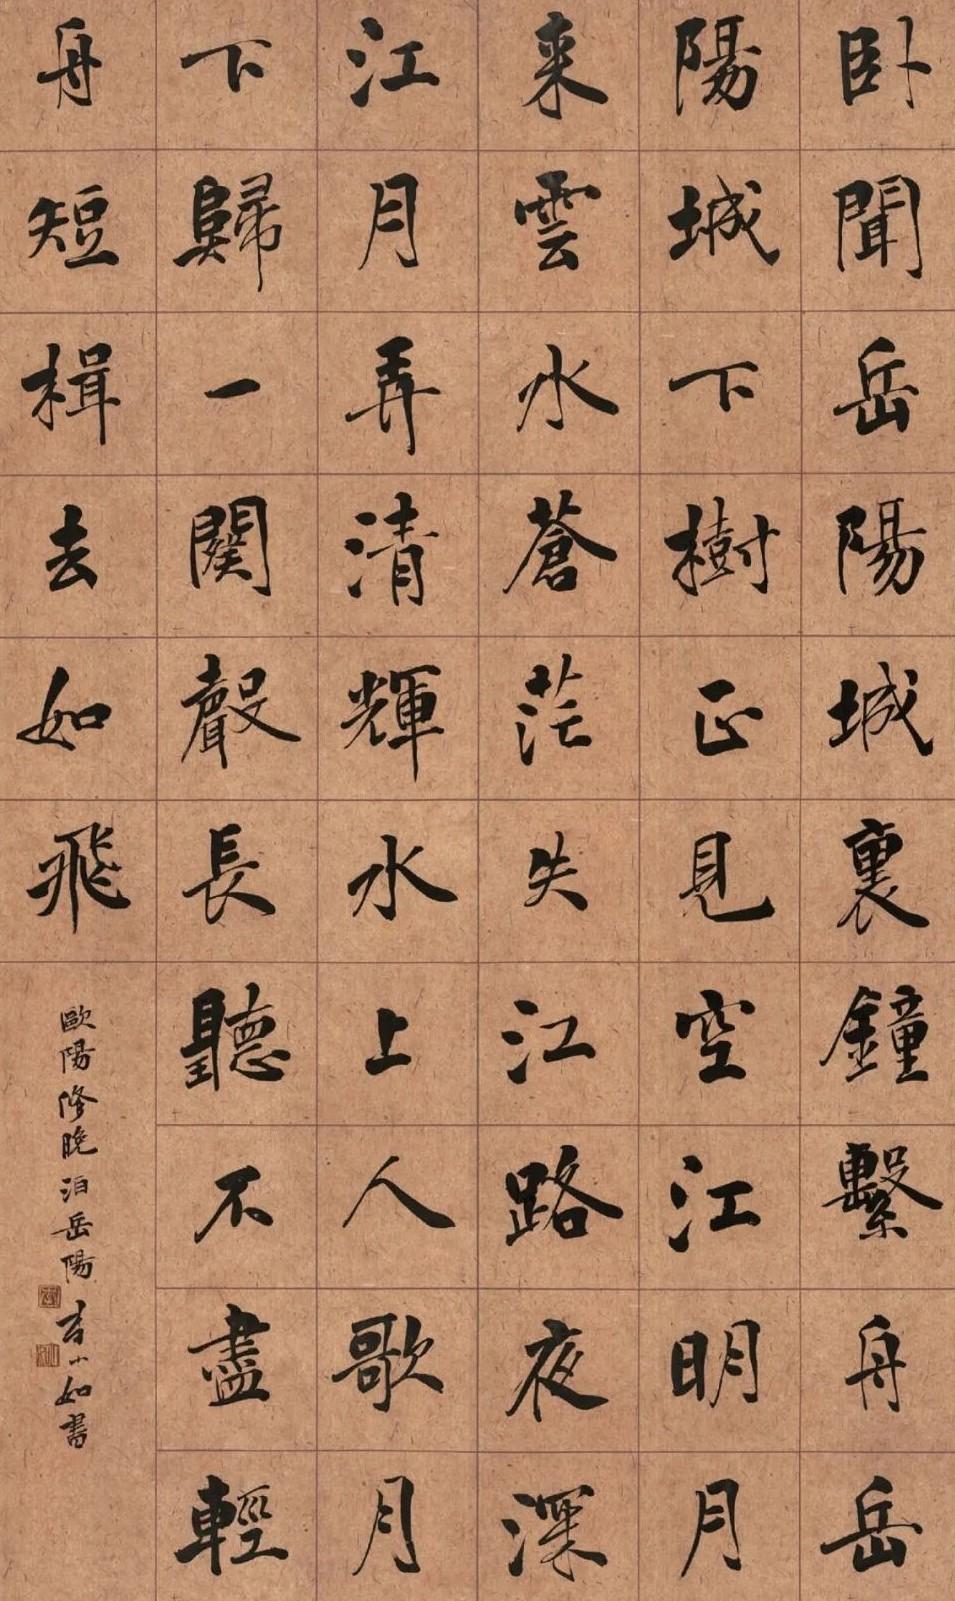 卧聞岳陽城裏鐘繫舟岳
陽城下樹正見空江明月
来雲水蒼茫失江路夜深
江月弄清輝水上人歌月
下歸一闋聲長聽不盡輕
舟短楫去如飛
歐陽修晚泊岳陽
小如書